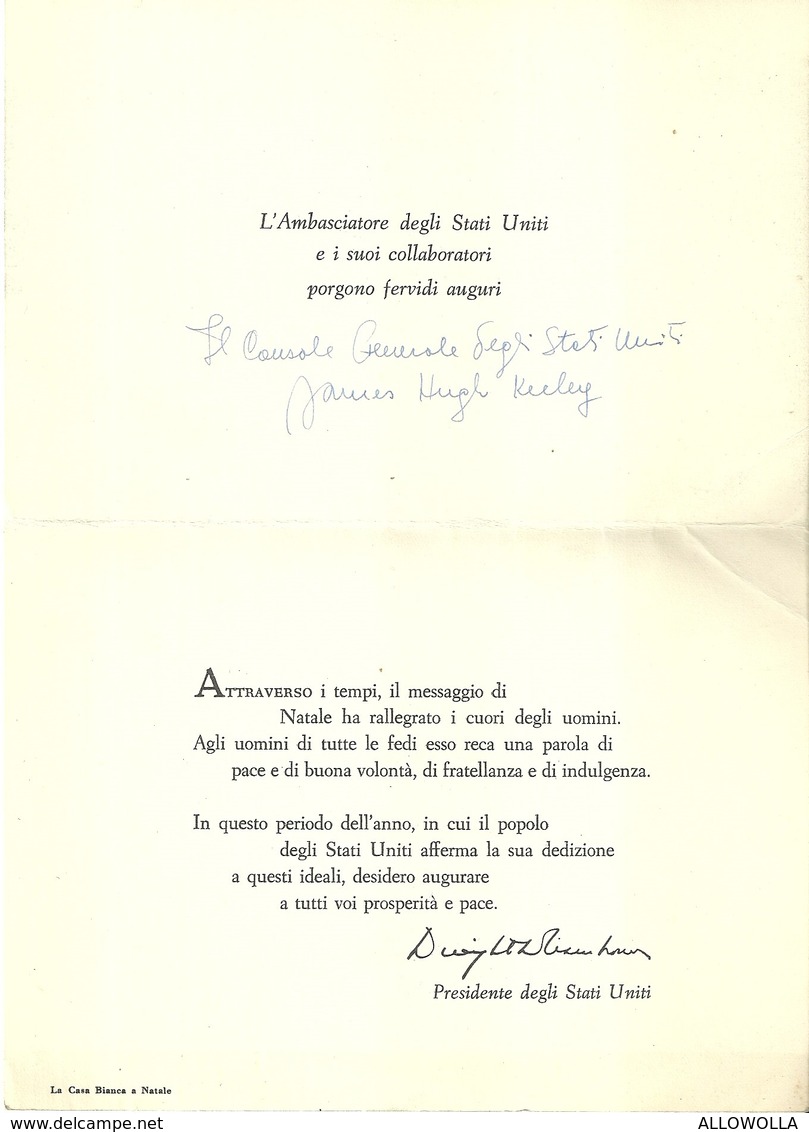 L'Ambasciatore degli Stati Uniti
e i suoi collaboratori
porgono fervidi auguri
Il Console Generale degli Stati Uniti
James Hugh Keeley
ATTRAVERSO i tempi, il messaggio di
Natale ha rallegrato i cuori degli uomini.
Agli uomini di tutte le fedi esso reca una parola di
pace e di buona volontà, di fratellanza e di indulgenza.
In questo periodo dell'anno, in cui il popolo
degli Stati Uniti afferma la sua dedizione
a questi ideali, desidero augurare
a tutti voi prosperità e pace.
Dwight D Eisenhower
Presidente degli Stati Uniti
La Casa Bianca a Natale
www.delcampe.net
ALLOWOLLA